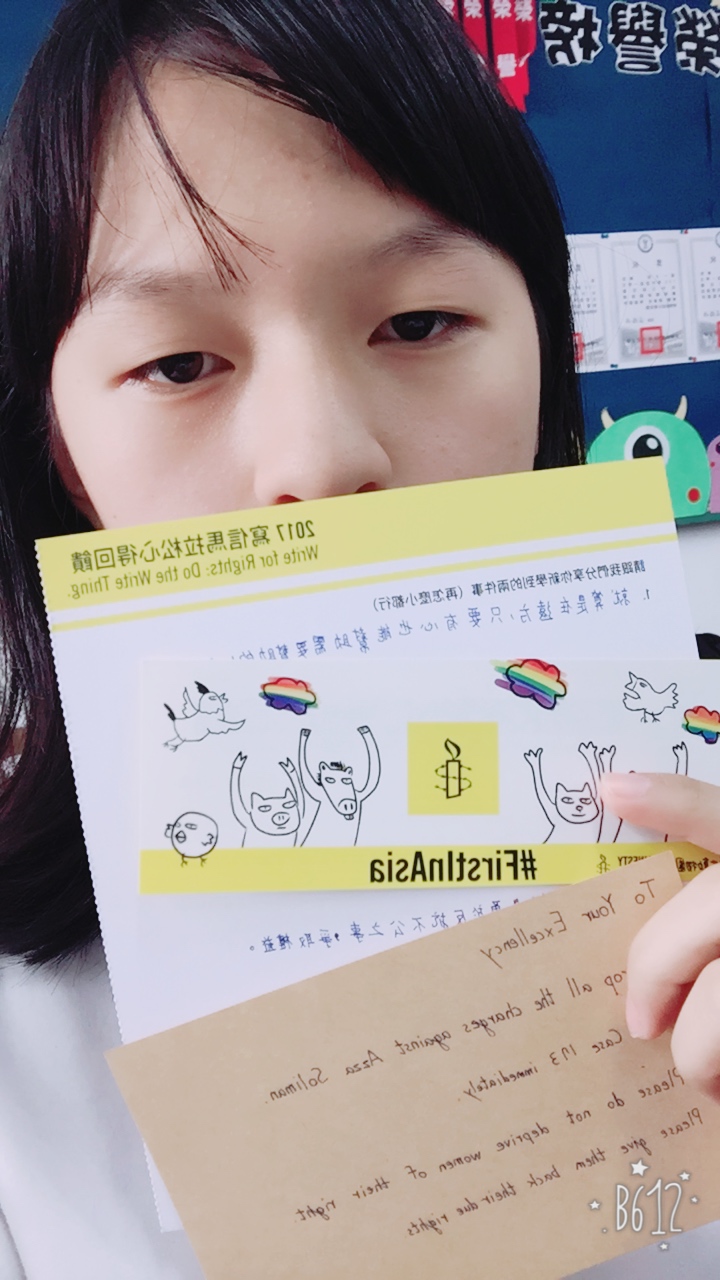 榮譽榜
2017 寫信馬拉松心得回饋
Write for Rights: Do the Write Thing.
請跟我們分享你新學到的兩件事（再怎麼小都行）
1. 就算是在遠方，只要有心也能幫助需要幫助的
#FirstInAsia
反抗不公之事，爭取權益。
To Your Excellency
rop all the charges against Azza Soliman.
Case 173 immediately.
Please do not deprive women of their right.
Please give them back their due rights
B612